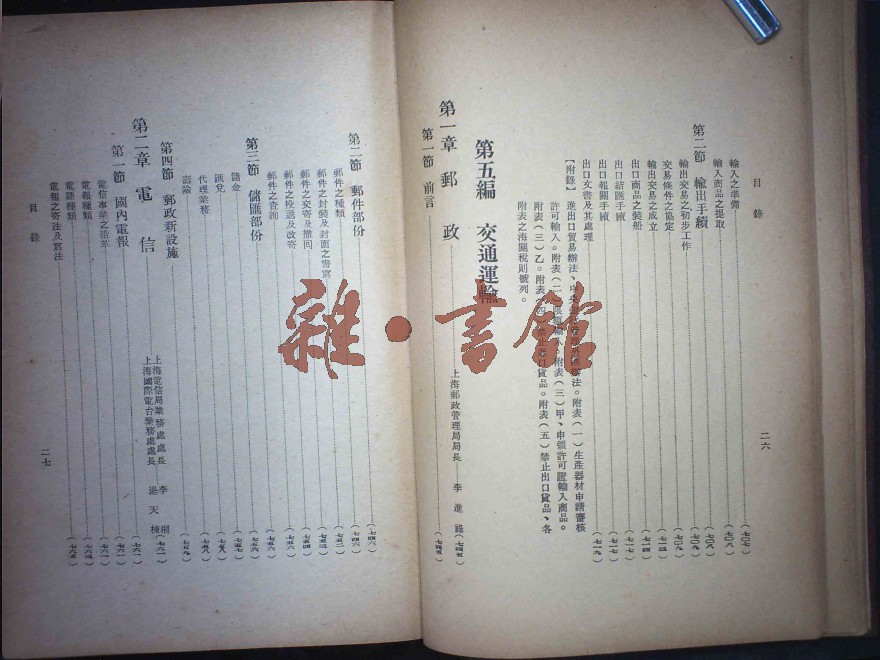 目錄
二六
輸入之準備(七〇七)
輸入商品之提取(七〇八)
第二節 輸出手續(七〇九)
輸出交易之初步工作(七〇九)
交易條件之協定
輸出交易之成立
出口商品之裝船
出口結匯手續(七一七)
出口報關手續(七一七)
出口文書及其處理(七一九)
【附錄】進出口貿易辦法、
附表(一)生產器材申請審核
許可輸入。附表(二)
附表(三)甲、申領許可證輸入商品。
附表(三)乙。附表(四)禁止進口貨品。附表(五)禁止出口貨品、各
附表之海關稅則號列。
第五編 交通運輸
第一章 郵政 上海郵政管理局局長 李進祿(七四五)
第一節 前言(七四五)
第二節 郵件部份(七四六)
郵件之種類(七四六)
郵件之封裝及封面之書寫(七五二)
郵件之交寄及撤回
郵件之投遞及改寄(七五六)
郵件之查詢(七五六)
第三節 儲匯部份(七五六)
儲金(七五七)
匯兌
代理業務
壽險(七五九)
第四節 郵政新設施
第二章 電信 上海電信局業務處處長 李桐
上海國際電台業務處處長 湯天棟(七六一)
第一節 國內電報(七六一)
電信事業之沿革(七六一)
電報種類
電報之寄法及寫法
目錄
二七
雜·書館